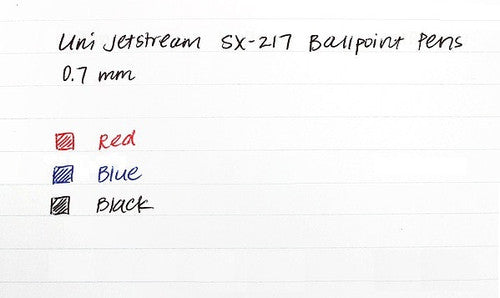 Uni Jetstream SX-217 Ballpoint Pens
0.7 mm
Red
Blue
Black